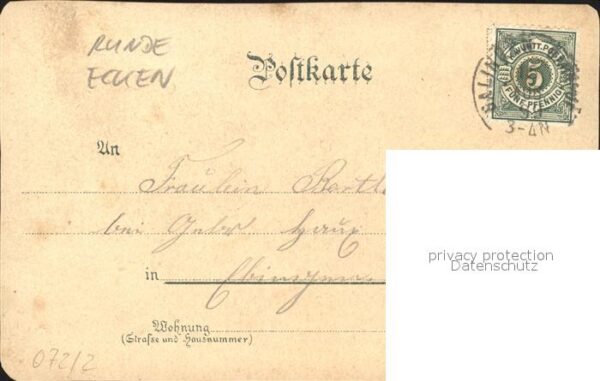 RUNDE
ECKEN
Postkarte
K. WÜRTT. POST
5
FÜNF PFENNIG
3-4N
An
Fräulein Barth
bei Gebr Haux
in Ebingen
Wohnung
(Straße und Hausnummer)
privacy protection
Datenschutz
072/2